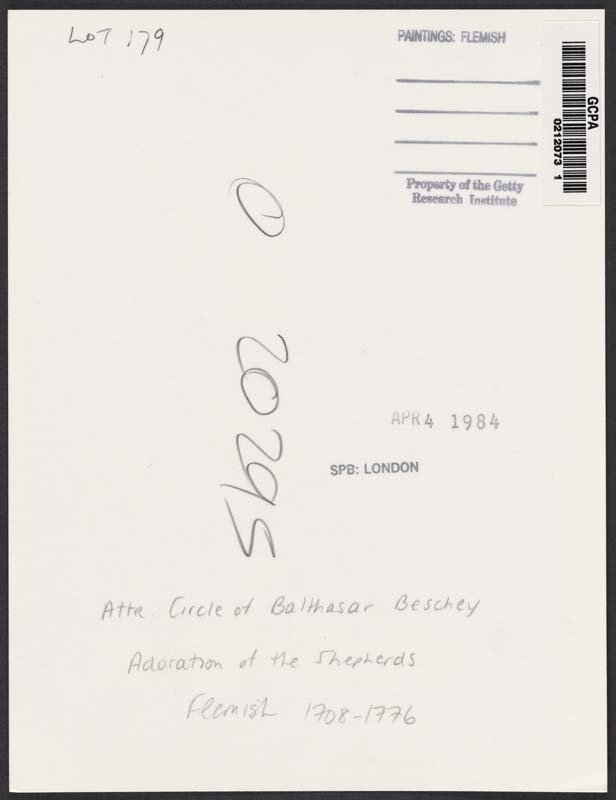 LOT 179
PAINTINGS: FLEMISH
GCPA
0212073 1
Property of the Getty
Research Institute
20295
APR 4 1984
SPB: LONDON
Attr. Circle of Balthasar Beschey
Adoration of the Shepherds
Flemish 1708-1776